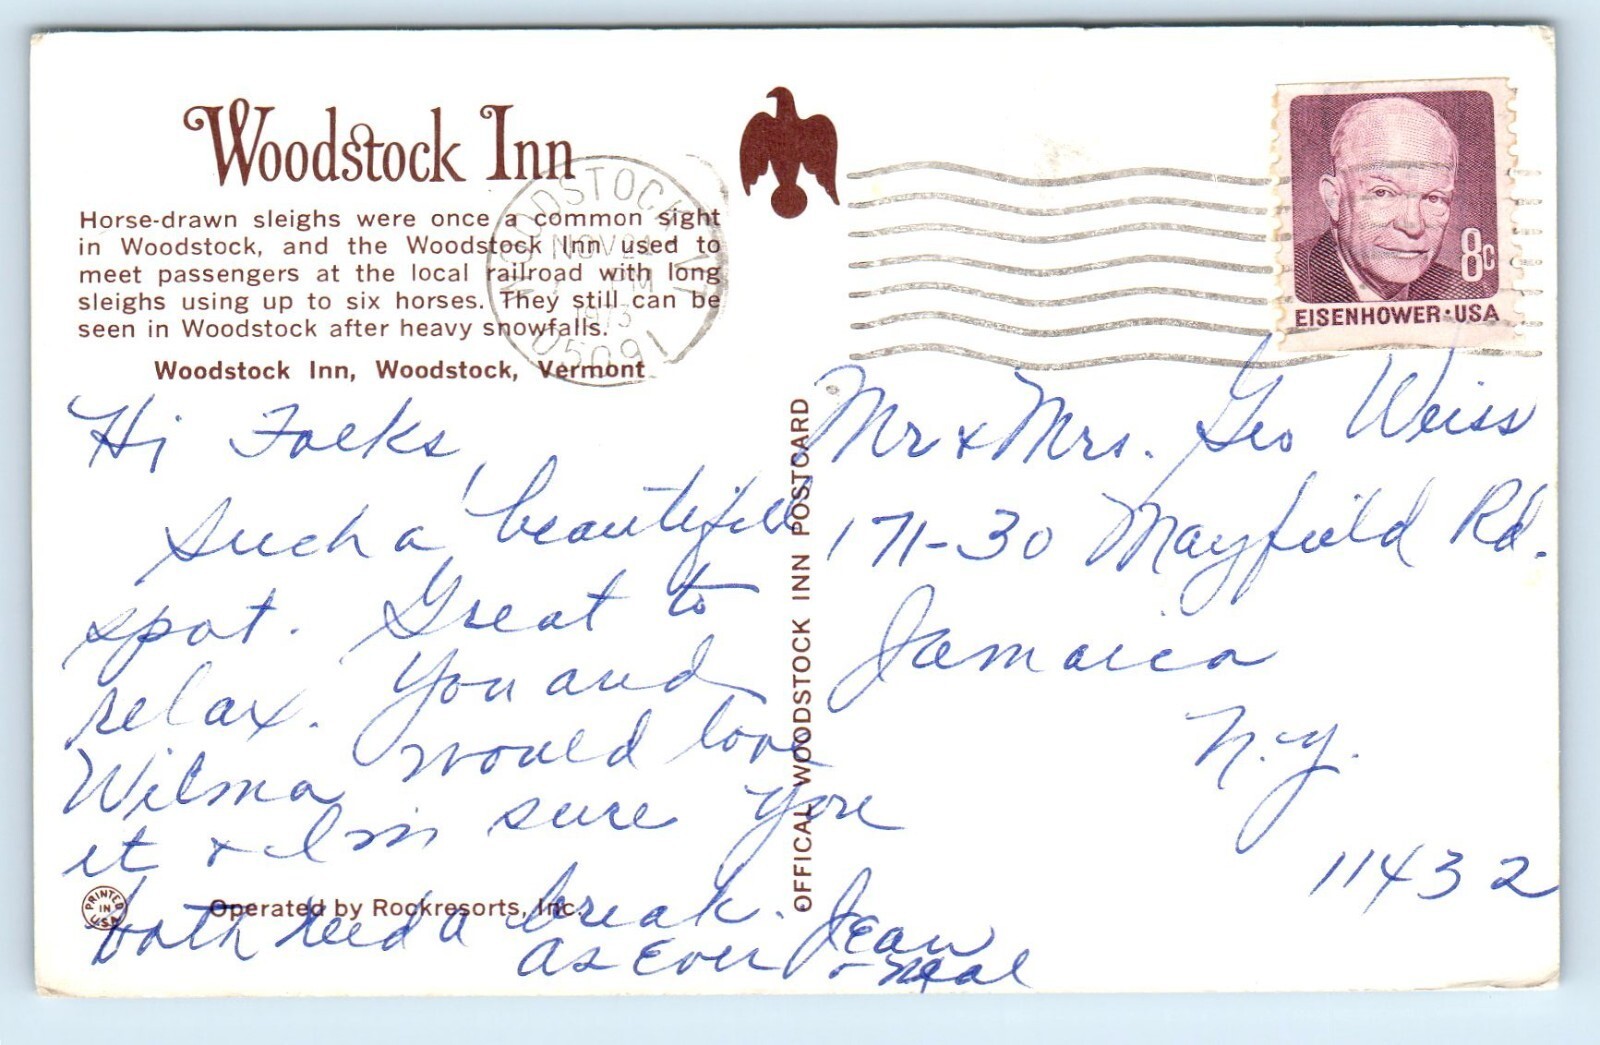 Woodstock Inn
Horse-drawn sleighs were once a common sight
in Woodstock, and the Woodstock Inn used to
meet passengers at the local railroad with long
sleighs using up to six horses. They still can be
seen in Woodstock after heavy snowfalls.
Woodstock Inn, Woodstock, Vermont
WOODSTOCK VT
NOV 24
PM
1973
05091
8c
EISENHOWER·USA
Hi Folks,
Such a beautiful
spot. Great to
relax. You and
Wilma would love
it & I'm sure you
both need a break.
As Ever Jean
& Neal
PRINTED
IN
U.S.A.
Operated by Rockresorts, Inc.
OFFICAL WOODSTOCK INN POSTCARD
Mr & Mrs. Geo Weiss
171-30 Mayfield Rd.
Jamaica
N.Y.
11432